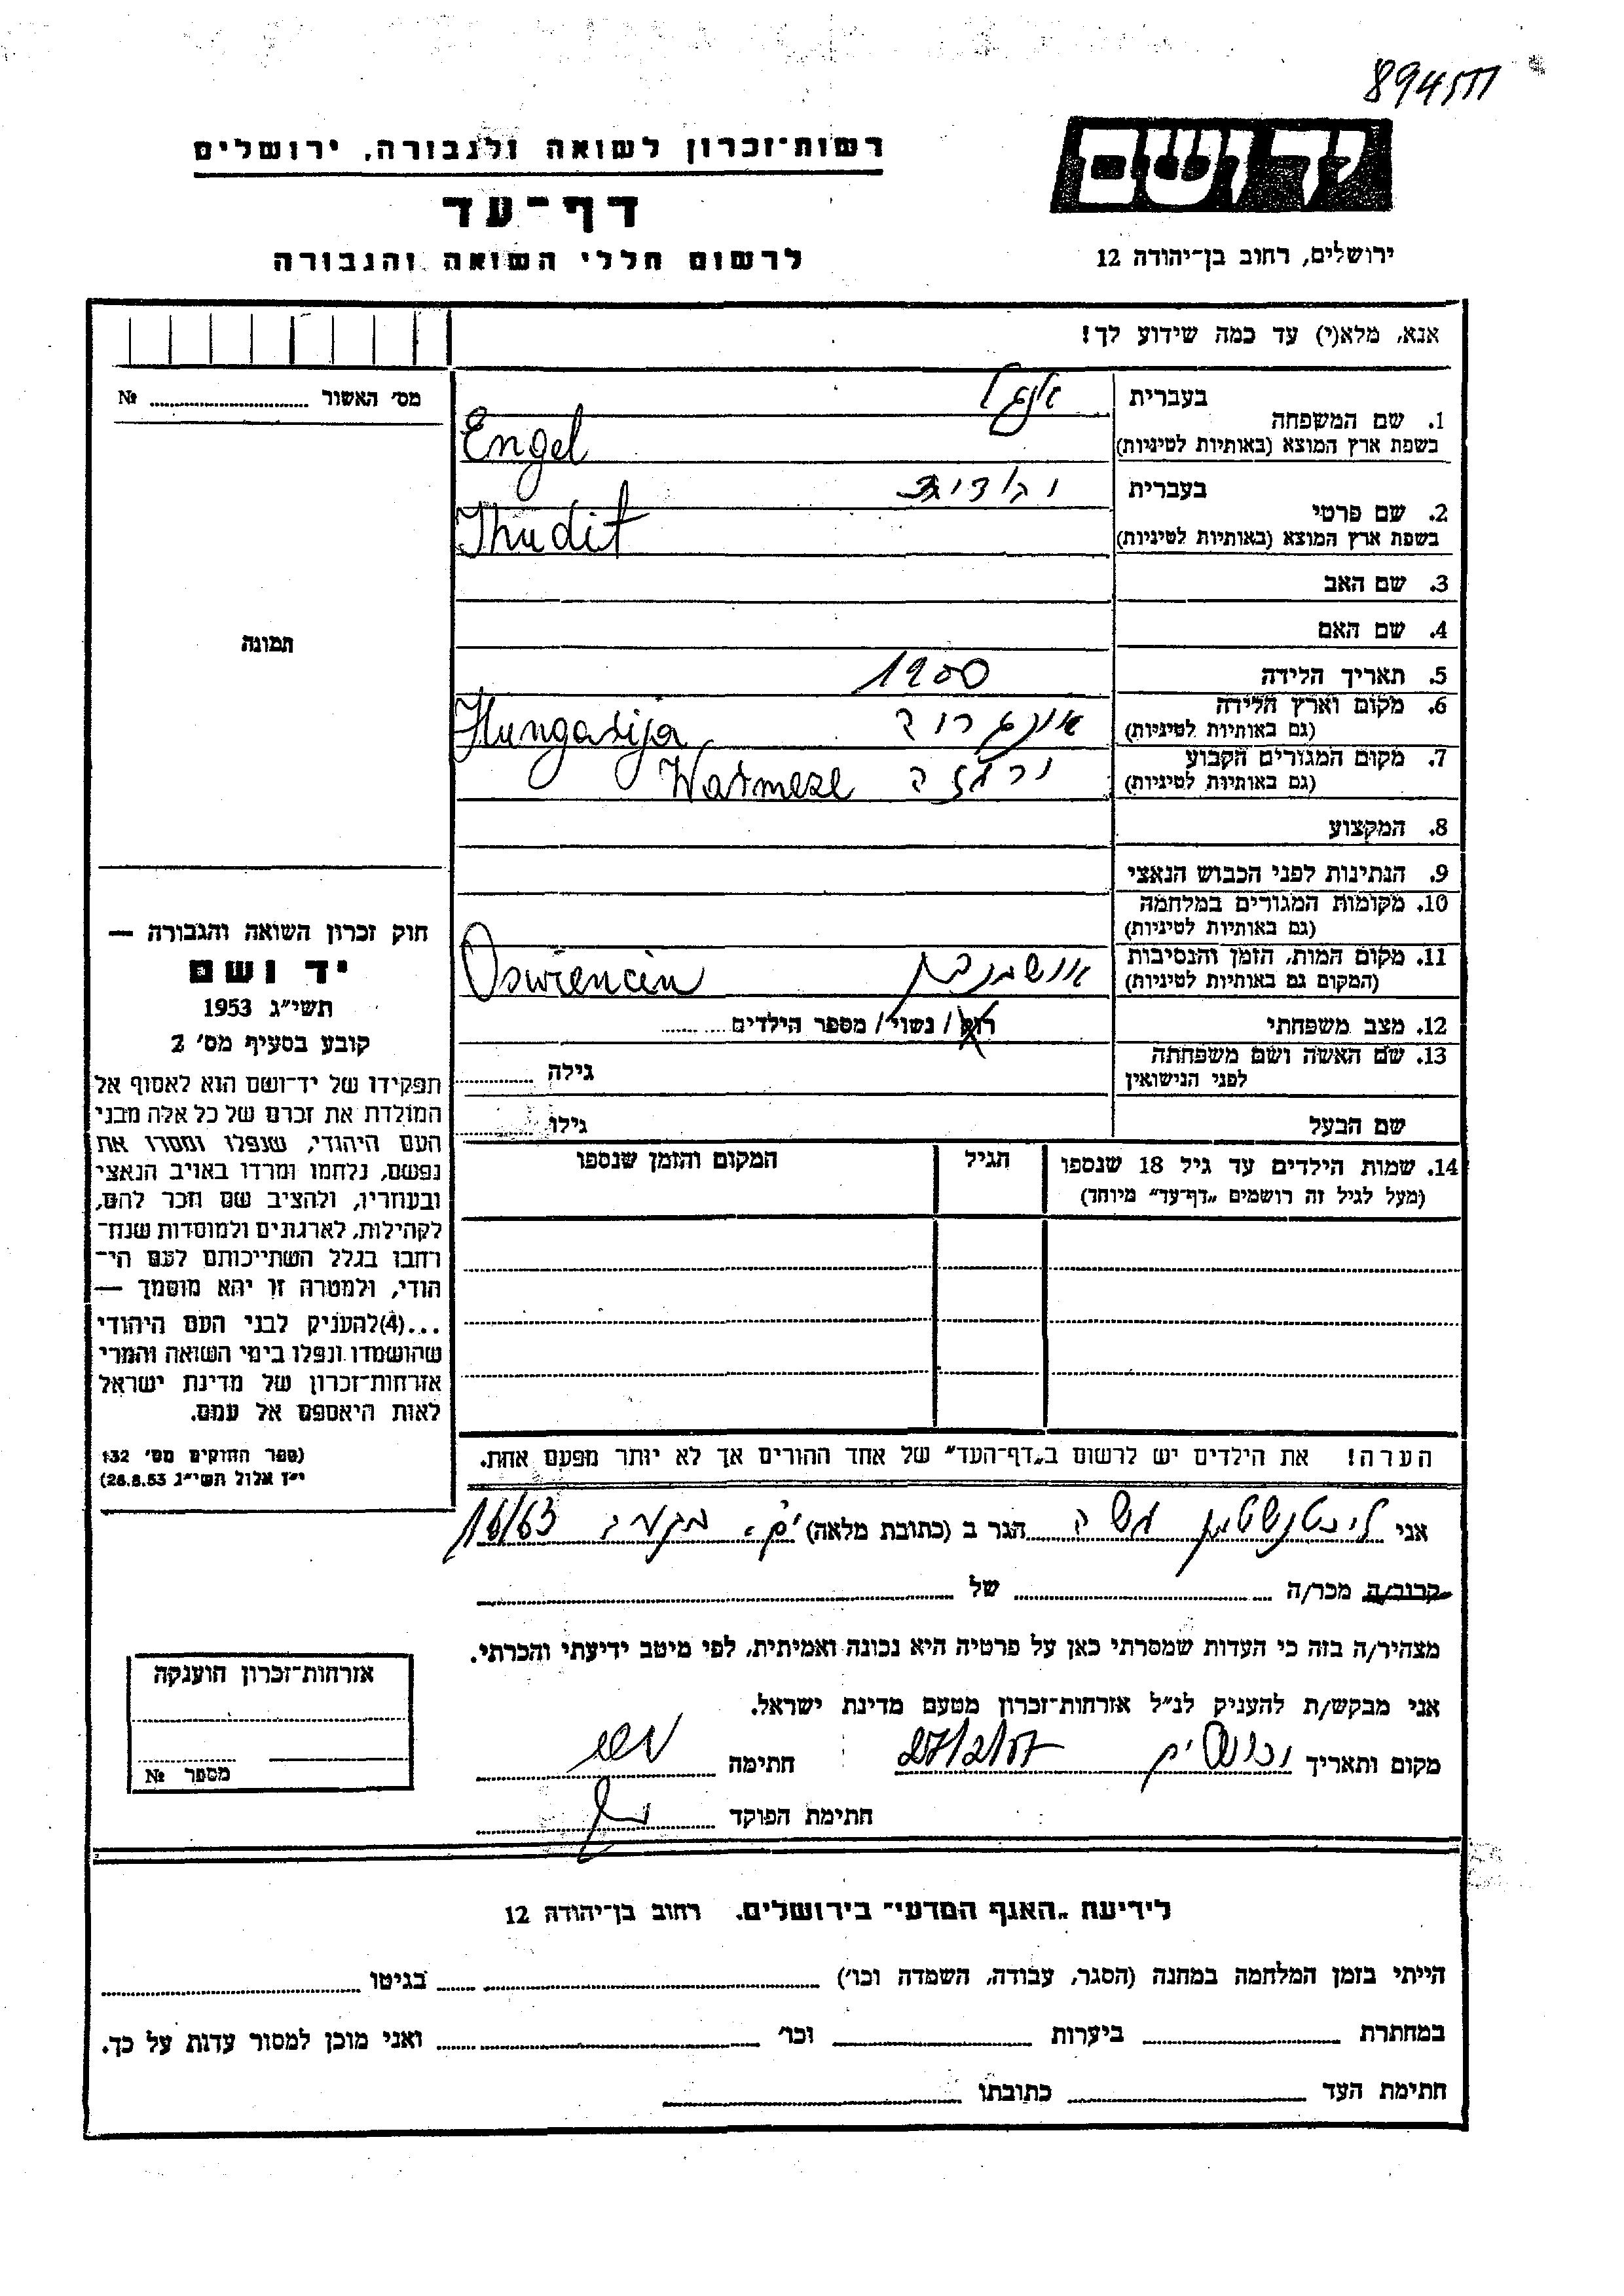 894511
רשות־זכרון לשואה ולגבורה, ירושלים
דף־עד
לרשום חללי השואה והגבורה
יד ושם
ירושלים, רחוב בן־יהודה 12
אנא, מלא(י) עד כמה שידוע לך!
מס׳ האשור № ..........
תמונה
1. שם המשפחה
בעברית
אנגל
בשפת ארץ המוצא (באותיות לטיניות)
Engel
2. שם פרטי
בעברית
יהודית
בשפת ארץ המוצא (באותיות לטיניות)
Ihudit
3. שם האב
4. שם האם
5. תאריך הלידה
1900
6. מקום וארץ הלידה
(גם באותיות לטיניות)
אונגריה Hungarija
7. מקום המגורים הקבוע
(גם באותיות לטיניות)
Warmeze
8. המקצוע
9. הנתינות לפני הכבוש הנאצי
10. מקומות המגורים במלחמה
(גם באותיות לטיניות)
11. מקום המות, הזמן והנסיבות
(המקום גם באותיות לטיניות)
Oswiencin
12. מצב משפחתי
רוק / נשוי / מספר הילדים ......
13. שם האשה ושם משפחתה
לפני הנישואין
גילה ..........
שם הבעל
גילו ..........
14. שמות הילדים עד גיל 18 שנספו
(מעל לגיל זה רושמים „דף־עד״ מיוחד)
הגיל
המקום והזמן שנספו
הערה! את הילדים יש לרשום ב„דף־העד״ של אחד ההורים אך לא יותר מפעם אחת.
חוק זכרון השואה והגבורה —
יד ושם
תשי״ג 1953
קובע בסעיף מס׳ 2
תפקידו של יד־ושם הוא לאסוף אל
המולדת את זכרם של כל אלה מבני
העם היהודי, שנפלו ומסרו את
נפשם, נלחמו ומרדו באויב הנאצי
ובעוזריו, ולהציב שם וזכר להם,
לקהילות, לארגונים ולמוסדות שנח־
רבו בגלל השתייכותם לעם הי־
הודי, ולמטרה זו יהא מוסמך —
...(4)להעניק לבני העם היהודי
שהושמדו ונפלו בימי השואה והמרי
אזרחות־זכרון של מדינת ישראל
לאות היאספם אל עמם.
(ספר החוקים מס׳ 132
י״ז אלול תשי״ג 28.8.53)
אני ליכטנשטיין משה הגר ב (כתובת מלאה) 16/63
קרוב/ה מכר/ה .......... של ..........
מצהיר/ה בזה כי העדות שמסרתי כאן על פרטיה היא נכונה ואמיתית, לפי מיטב ידיעתי והכרתי.
אני מבקש/ת להעניק לנ״ל אזרחות־זכרון מטעם מדינת ישראל.
מקום ותאריך ירושלים 27/2/57 חתימה
חתימת הפוקד
אזרחות־זכרון הוענקה
מספר №
לידיעת „האגף המדעי״ בירושלים. רחוב בן־יהודה 12
הייתי בזמן המלחמה במחנה (הסגר, עבודה, השמדה וכו׳) .......... בגיטו ..........
במחתרת .......... ביערות .......... וכו׳ .......... ואני מוכן למסור עדות על כך.
חתימת העד .......... כתובתו ..........